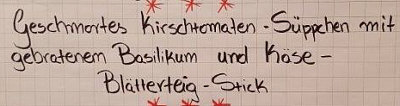 Geschmortes Kirschtomaten-Süppchen mit
gebratenem Basilikum und Käse-
Blätterteig-Stick